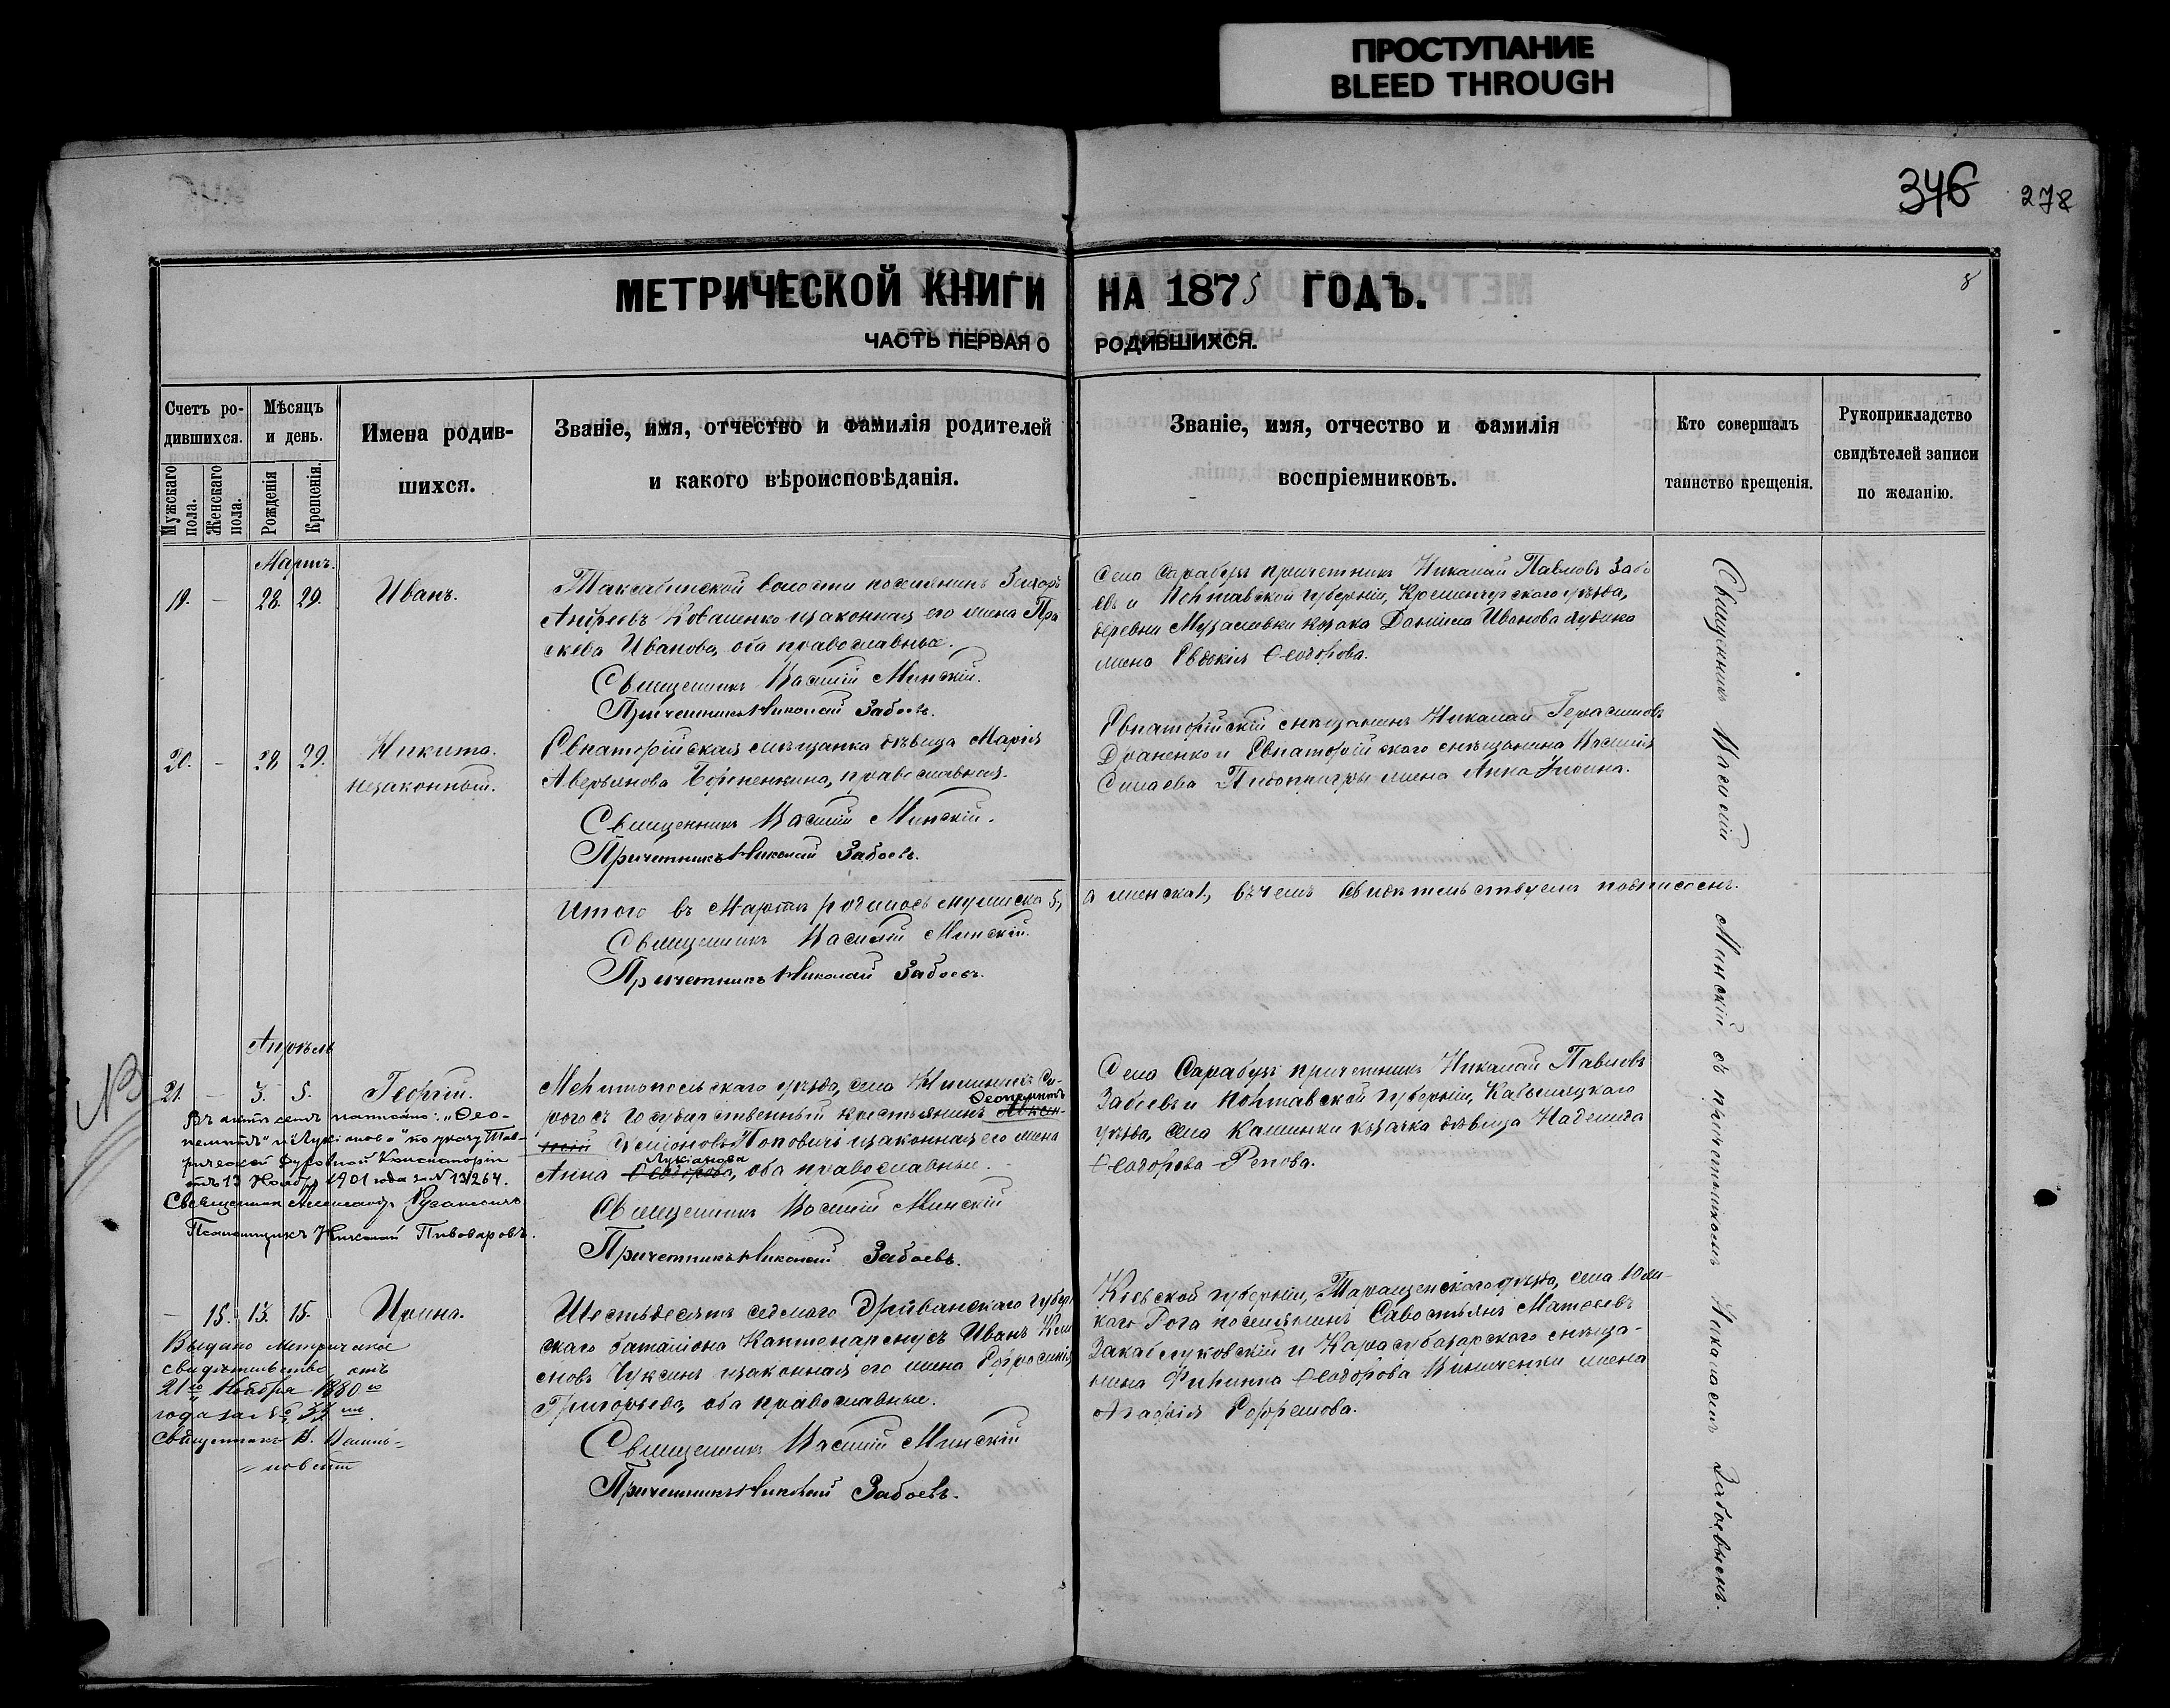 ПРОСТУПАНИЕ
BLEED THROUGH
346 278
8
МЕТРИЧЕСКОЙ КНИГИ НА 1875 ГОДЪ.
ЧАСТЬ ПЕРВАЯ О РОДИВШИХСЯ.
Счетъ ро-
дившихся.
Мужскаго
пола.
Женскаго
пола.
Мѣсяцъ
и день.
Рожденія
Крещенія.
Имена родив-
шихся.
Званіе, имя, отчество и фамилія родителей
и какого вѣроисповѣданія.
Званіе, имя, отчество и фамилія
воспріемниковъ.
Кто совершалъ
таинство крещенія.
Рукоприкладство
свидѣтелей записи
по желанію.
Мартъ.
19. – 28. 29. Иванъ.
волости поселянинъ
Андреевъ Коваленко и законная его жена Пра
скева Иванова, оба православные.
Священникъ Василій Минскій.
Причетникъ Николай Забоевъ.
Села Сарабузъ причетникъ Николай Павловъ Забо
евъ и Полтавской губерніи, Кременчугскаго уѣзда,
деревни козака Даніила Иванова
жена Евдокія Ѳеодорова.
20. – 28. 29. Никита.
незаконный.
Евпаторійская мѣщанка дѣвица Марія
Аверьянова православная.
Священникъ Василій Минскій.
Причетникъ Николай Забоевъ.
Евпаторійскій мѣщанинъ Николай Герасимовъ
Драненко и Евпаторійскаго мѣщанина Василія
жена Анна
Итого въ Мартѣ родилось мужеска 5,
а женска 1, въ чемъ свидѣтельствуемъ подписомъ.
Священникъ Василій Минскій.
Причетникъ Николай Забоевъ.
Апрѣль
21. – 3. 5. Георгій.
Мелитопольскаго уѣзда, села
государственный крестьянинъ
Феопемптъ
Симіоновъ Поповичъ и законная его жена
Лукіанова
Анна Ѳеодорова, оба православные.
Священникъ Василій Минскій
Причетникъ Николай Забоевъ.
Села Сарабузъ причетникъ Николай Павловъ
Забоевъ и Полтавской губерніи, Кабыляцкаго
уѣзда, села Камянки козачка дѣвица Надежда
Ѳеодорова Репова.
NB
Въ актѣ семъ написано: „Ѳео-
пемптъ" и „Лукіанова" по указу Тав-
рической Духовной Консисторіи
отъ 13 Ноября 1901 года за № 13264.
Священникъ Александръ
Псаломщикъ Николай Пивоваровъ.
– 15. 13. 15. Ирина.
Шестьдесятъ седьмаго Эриванскаго Губерн
скаго баталіона Каптенармусъ Иванъ
и законная его жена Евфросинія
Григорьева, оба православные.
Священникъ Василій Минскій
Причетникъ Николай Забоевъ.
Кіевской губерніи, Таращенскаго уѣзда, села
Рога поселянинъ Савостьянъ Матвеевъ
Закаблуковскій и Карасубазарскаго мѣща-
нина Филиппа Ѳеодорова Винниченки жена
Агафія Ефремова.
Выдано метрическое
свидѣтельство отъ
21го Ноября 1880го
года за № 33мъ.
Священникъ В.
Священникъ Василій Минскій съ причетникомъ Николаемъ Забоевымъ.